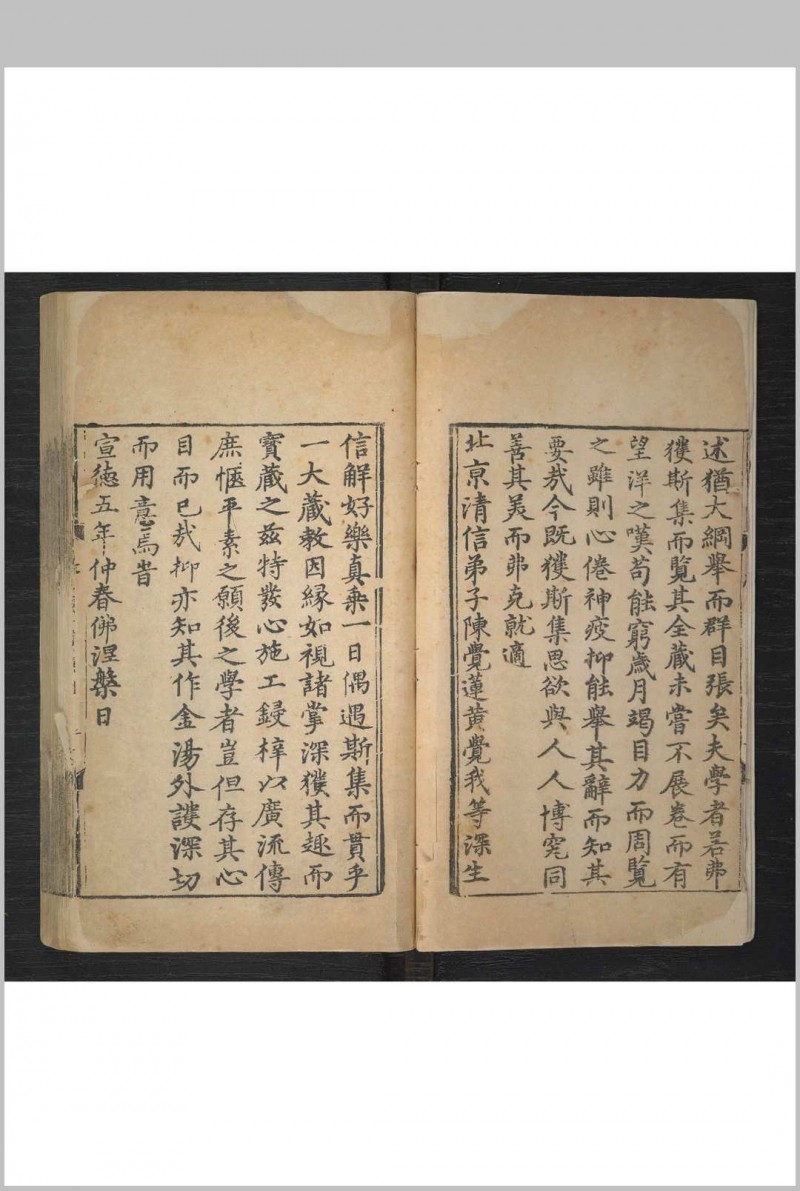 述猶大綱舉而群目張矣夫學者若弗
獲斯集而覽其全藏未嘗不展卷而有
望洋之嘆苟能窮歲月竭目力而周覽
之雖則心倦神疫抑能舉其辭而知其
要哉今既獲斯集思欲與人人博究同
善其美而弗克就適
北京清信弟子陳覺蓮黄覺我等深生
信解好樂真乘一日偶遇斯集而貫乎
一大藏教因縁如視諸掌深獲其趣而
寳藏之兹特發心施工鋟梓以廣流傳
庶愜平素之願後之學者豈但存其心
目而已哉抑亦知其作金湯外護深切
而用意焉旹
宣德五年仲春佛涅槃日